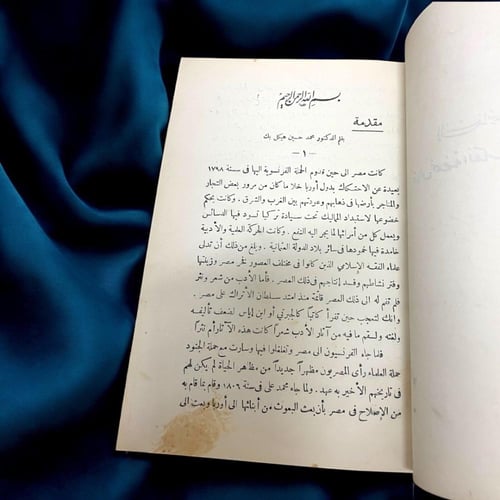 بسم الله الرحمن الرحيم
مقدمة
بقلم الدكتور محمد حسين هيكل بك
— ١ —
كانت مصر الى حين قدوم الحملة الفرنسوية اليها فى سنة ١٧٩٨
بعيدة عن الاحتكاك بدول أوربا خلا ما كان من مرور بعض التجار
والمتاجر بأرضها فى ذهابهم وعودتهم بين الغرب والشرق . وكانت بحكم
خضوعها لاستبداد المماليك تحت سيادة تركيا تسود فيها الدسائس
ويعمل كل من أمرائها لما يجر اليه النفع . وكانت الحركة العقلية والأدبية
خامدة فيها خمودها فى سائر بلاد الدولة العثمانية . وبلغ من ذلك أن تدلى
علماء الفقه الإسلامى الذين كانوا فى مختلف العصور فخر مصر وزينتها
وفتر نشاطهم وفسد إنتاجهم فى ذلك العصر . فأما الأدب من شعر ونثر
فلم تقم له الى ذلك العصر قائمة منذ امتد سلطان الأتراك على مصر .
وانك لتعجب حين تقرأ كتابا كالجبرتى أو ابن اياس لضعف تأليفه
ولغته ولسقم ما فيه من آثار الأدب شعرا كانت هذه الآثار أم نثرا
فلما جاء الفرنسيون الى مصر وتغلغلوا فيها وسارت مع حملة الجنود
حملة العلماء رأى المصريون مظهرا جديدا من مظاهر الحياة لم يكن لهم
فى تاريخهم الأخير به عهد . ولما جاء محمد على فى سنة ١٨٠٦ وقام بما قام به
من الإصلاح فى مصر بأن بعث البعوث من أبنائها الى أوربا وبعث الى